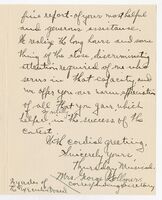 fine report of your most helpful
and generous assistance.
We realize the long hours and some-
thing of the close, discriminating
attention required of one who
serves in that capacity and
we offer you our warm appreciation
of all that you gave which
helped in the success of the
Contest.
With cordial greeting,
Sincerely yours,
Thursday Musical.
Mrs. George
Corresponding Secretary